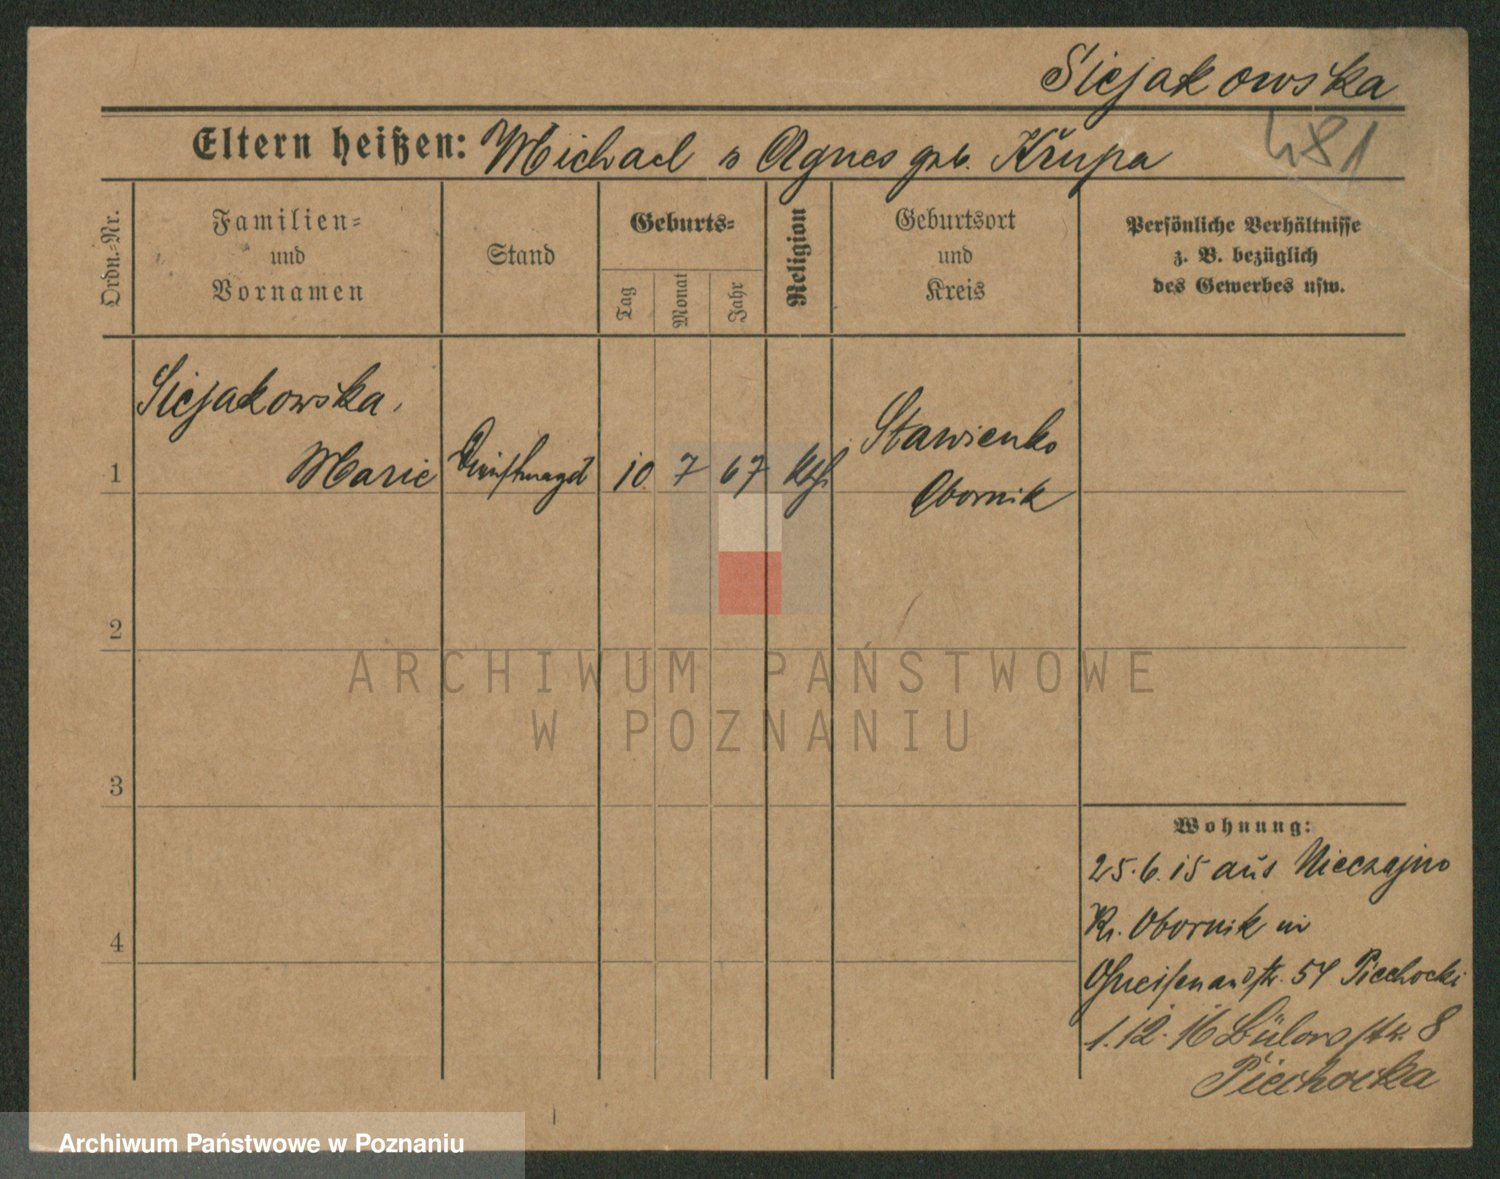 Siejakowska
Eltern heißen: Michael u Agnes geb. Krupa
481
Ordn.-Nr.
Familien-
und
Vornamen
Stand
Geburts-
Tag
Monat
Jahr
Religion
Geburtsort
und
Kreis
Persönliche Verhältnisse
z. B. bezüglich
des Gewerbes usw.
1
Siejakowska,
Marie
Dienstmagd
10
7
67
kth.
Slawienko
Obornik
2
3
4
ARCHIWUM PAŃSTWOWE
W POZNANIU
Wohnung:
25.6.15 aus Nieczajno
Kr. Obornik in
Gneisenaustr. 54 Piechocki
1.12.16 Bülowstr. 8
Piechocka
Archiwum Państwowe w Poznaniu